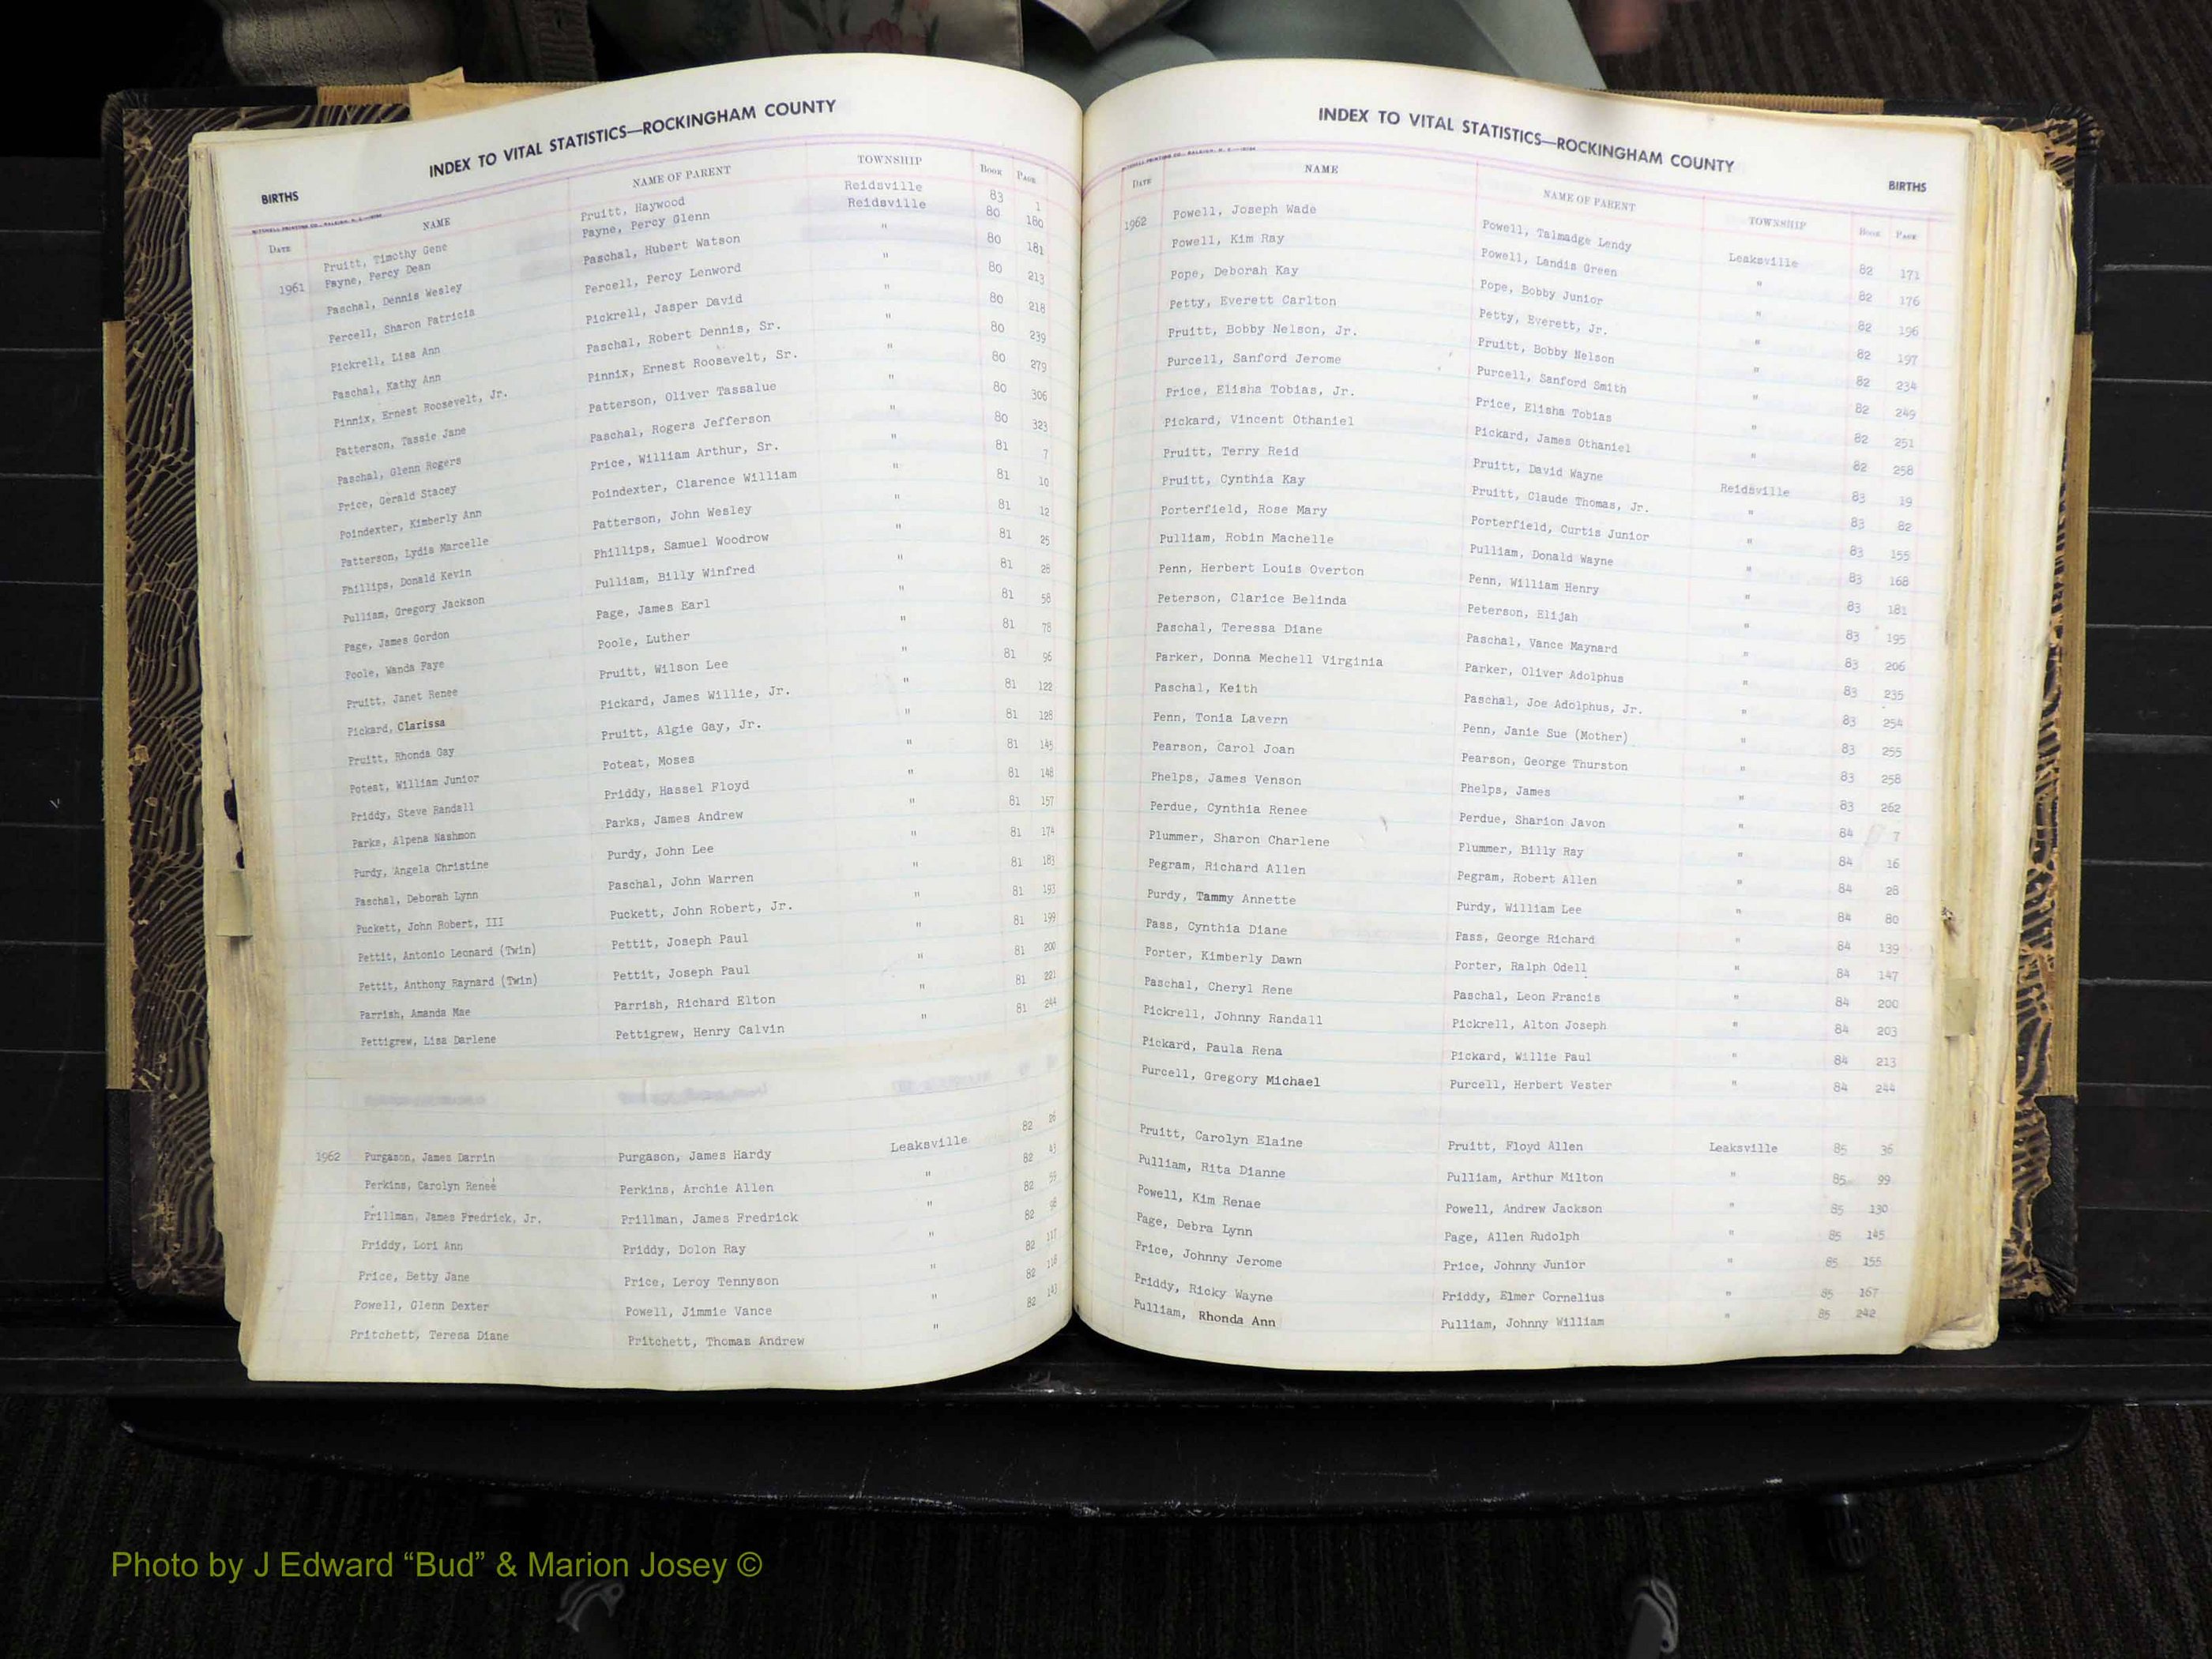 INDEX TO VITAL STATISTICS—ROCKINGHAM COUNTY
BIRTHS
MITCHELL PRINTING CO., RALEIGH, N. C.
DATE NAME NAME OF PARENT TOWNSHIP BOOK PAGE
Pruitt, Timothy Gene Pruitt, Haywood Reidsville 83 1
1961 Payne, Percy Dean Payne, Percy Glenn Reidsville 80 180
Paschal, Dennis Wesley Paschal, Hubert Watson " 80 181
Percell, Sharon Patricia Percell, Percy Lenword " 80 213
Pickrell, Lisa Ann Pickrell, Jasper David " 80 218
Paschal, Kathy Ann Paschal, Robert Dennis, Sr. " 80 239
Pinnix, Ernest Roosevelt, Jr. Pinnix, Ernest Roosevelt, Sr. " 80 279
Patterson, Tassie Jane Patterson, Oliver Tassalue " 80 306
Paschal, Glenn Rogers Paschal, Rogers Jefferson " 80 323
Price, Gerald Stacey Price, William Arthur, Sr. " 81 7
Poindexter, Kimberly Ann Poindexter, Clarence William " 81 10
Patterson, Lydia Marcelle Patterson, John Wesley " 81 12
Phillips, Donald Kevin Phillips, Samuel Woodrow " 81 25
Pulliam, Gregory Jackson Pulliam, Billy Winfred " 81
Page, James Gordon Page, James Earl " 81 58
Poole, Wanda Faye Poole, Luther " 81 78
Pruitt, Janet Renee Pruitt, Wilson Lee " 81 96
Pickard, Clarissa Pickard, James Willie, Jr. " 81 122
Pruitt, Rhonda Gay Pruitt, Algie Gay, Jr. " 81 128
Poteat, William Junior Poteat, Moses " 81 145
Priddy, Steve Randall Priddy, Hassel Floyd " 81 148
Parks, Alpena Nashmon Parks, James Andrew " 81 157
Purdy, Angela Christine Purdy, John Lee " 81 174
Paschal, Deborah Lynn Paschal, John Warren " 81 183
Puckett, John Robert, III Puckett, John Robert, Jr. " 81 193
Pettit, Antonio Leonard (Twin) Pettit, Joseph Paul " 81 199
Pettit, Anthony Raynard (Twin) Pettit, Joseph Paul " 81 200
Parrish, Amanda Mae Parrish, Richard Elton " 81 221
Pettigrew, Lisa Darlene Pettigrew, Henry Calvin " 81 244
1962 Purgason, James Darrin Purgason, James Hardy Leaksville 82
Perkins, Carolyn Reneé Perkins, Archie Allen " 82 43
Prillman, James Fredrick, Jr. Prillman, James Fredrick " 82 59
Priddy, Lori Ann Priddy, Dolon Ray " 82 98
Price, Betty Jane Price, Leroy Tennyson " 82 117
Powell, Glenn Dexter Powell, Jimmie Vance " 82 118
Pritchett, Teresa Diane Pritchett, Thomas Andrew " 82 143
INDEX TO VITAL STATISTICS—ROCKINGHAM COUNTY
BIRTHS
MITCHELL PRINTING CO., RALEIGH, N. C.
DATE NAME NAME OF PARENT TOWNSHIP BOOK PAGE
1962 Powell, Joseph Wade Powell, Talmadge Lendy Leaksville 82 171
Powell, Kim Ray Powell, Landis Green " 82 176
Pope, Deborah Kay Pope, Bobby Junior " 82 196
Petty, Everett Carlton Petty, Everett, Jr. " 82 197
Pruitt, Bobby Nelson, Jr. Pruitt, Bobby Nelson " 82 234
Purcell, Sanford Jerome Purcell, Sanford Smith " 82 249
Price, Elisha Tobias, Jr. Price, Elisha Tobias " 82 251
Pickard, Vincent Othaniel Pickard, James Othaniel " 82 258
Pruitt, Terry Reid Pruitt, David Wayne Reidsville 83 19
Pruitt, Cynthia Kay Pruitt, Claude Thomas, Jr. " 83 82
Porterfield, Rose Mary Porterfield, Curtis Junior " 83 155
Pulliam, Robin Machelle Pulliam, Donald Wayne " 83 168
Penn, Herbert Louis Overton Penn, William Henry " 83 181
Peterson, Clarice Belinda Peterson, Elijah " 83 195
Paschal, Teressa Diane Paschal, Vance Maynard " 83 206
Parker, Donna Mechell Virginia Parker, Oliver Adolphus " 83 235
Paschal, Keith Paschal, Joe Adolphus, Jr. " 83 254
Penn, Tonia Lavern Penn, Janie Sue (Mother) " 83 255
Pearson, Carol Joan Pearson, George Thurston " 83 258
Phelps, James Venson Phelps, James " 83 262
Perdue, Cynthia Renee Perdue, Sharion Javon " 84 7
Plummer, Sharon Charlene Plummer, Billy Ray " 84 16
Pegram, Richard Allen Pegram, Robert Allen " 84 28
Purdy, Tammy Annette Purdy, William Lee " 84 80
Pass, Cynthia Diane Pass, George Richard " 84 139
Porter, Kimberly Dawn Porter, Ralph Odell " 84 147
Paschal, Cheryl Rene Paschal, Leon Francis " 84 200
Pickrell, Johnny Randall Pickrell, Alton Joseph " 84 203
Pickard, Paula Rena Pickard, Willie Paul " 84 213
Purcell, Gregory Michael Purcell, Herbert Vester " 84 244
Pruitt, Carolyn Elaine Pruitt, Floyd Allen Leaksville 85 36
Pulliam, Rita Dianne Pulliam, Arthur Milton " 85 99
Powell, Kim Renae Powell, Andrew Jackson " 85 130
Page, Debra Lynn Page, Allen Rudolph " 85 145
Price, Johnny Jerome Price, Johnny Junior " 85 155
Priddy, Ricky Wayne Priddy, Elmer Cornelius " 85 167
Pulliam, Rhonda Ann Pulliam, Johnny William " 85 242
Photo by J Edward “Bud” & Marion Josey ©